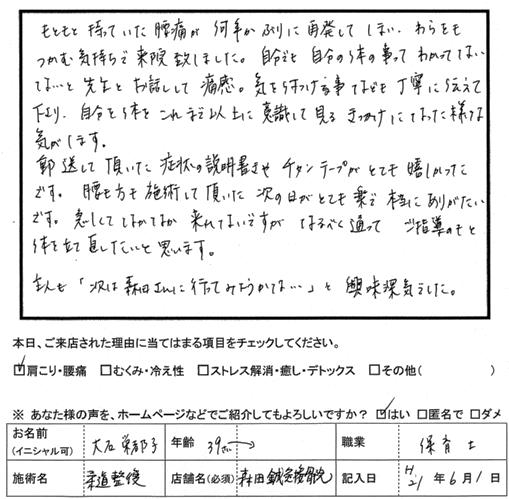 もともと持っていた腰痛が何年かぶりに再発してしまい、わらをも
つかむ気持ちで来院致しました。自分でも自分の体の事ってわかってない
なぁ…と先生とお話しして痛感。気を付ける事なども丁寧に伝えて
下さり、自分も体をこれまで以上に意識して見るきっかけになった様な
気がします。
郵送して頂いた症状の説明書きやチタンテープがとても嬉しかった
です。腰も方も施術して頂いた次の日がとても楽で本当にありがたい
です。忙しくてなかなか来れてないですがなるべく通ってご指導のもと
体を立て直したいと思います。
主人も「次は森田さんに行ってみようかな…」と興味深気でした。
本日、ご来店された理由に当てはまる項目をチェックしてください。
☑肩こり・腰痛 □むくみ・冷え性 □ストレス解消・癒し・デトックス □その他( )
※ あなた様の声を、ホームページなどでご紹介してもよろしいですか? ☑はい □匿名で □ダメ
お名前 (イニシャル可) 大石 栄都子 年齢 39才 職業 保育士
施術名 柔道整復 店舗名(必須) 森田鍼灸接骨院 記入日 H21年6月1日